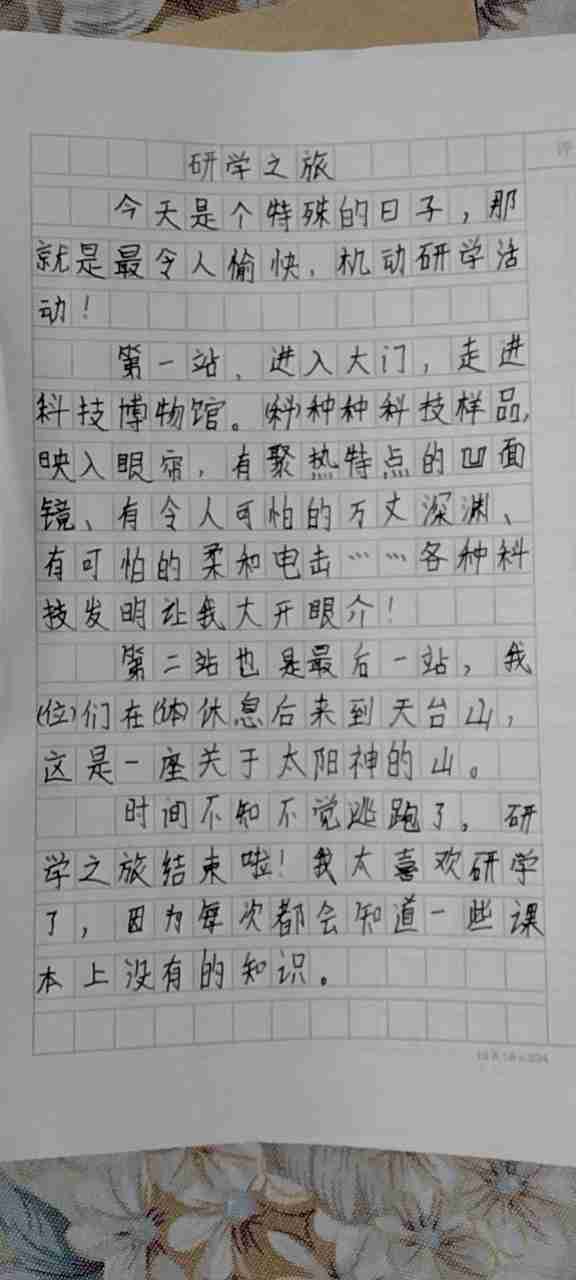 研学之旅
今天是个特殊的日子，那
就是最令人愉快、机动研学活
动！
第一站、进入大门，走进
科技博物馆。(科)种种科技样品，
映入眼帘，有聚热特点的凹面
镜、有令人可怕的万丈深渊、
有可怕的柔和电击……各种科
技发明让我大开眼介！
第二站也是最后一站，我
(位)们在(体)休息后来到天台山，
这是一座关于太阳神的山。
时间不知不觉逃跑了。研
学之旅结束啦！我太喜欢研学
了，因为每次都会知道一些课
本上没有的知识。